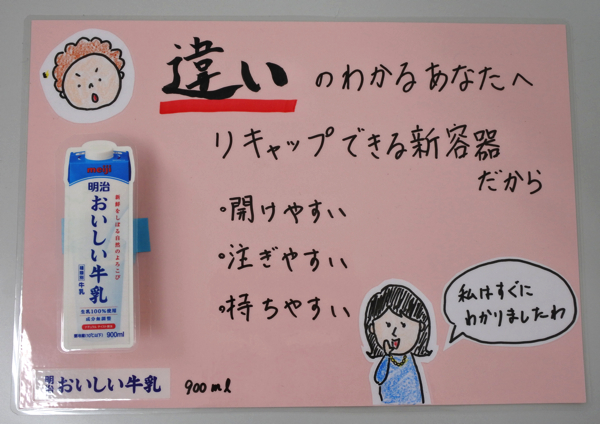 違いのわかるあなたへ
リキャップできる新容器
だから
・開けやすい
・注ぎやすい
・持ちやすい
私はすぐに
わかりましたわ
meiji
明治
おいしい牛乳
新鮮をしぼる自然のよろこび
種類別 牛乳
生乳100%使用
成分無調整
900ml
明治おいしい牛乳
900ml